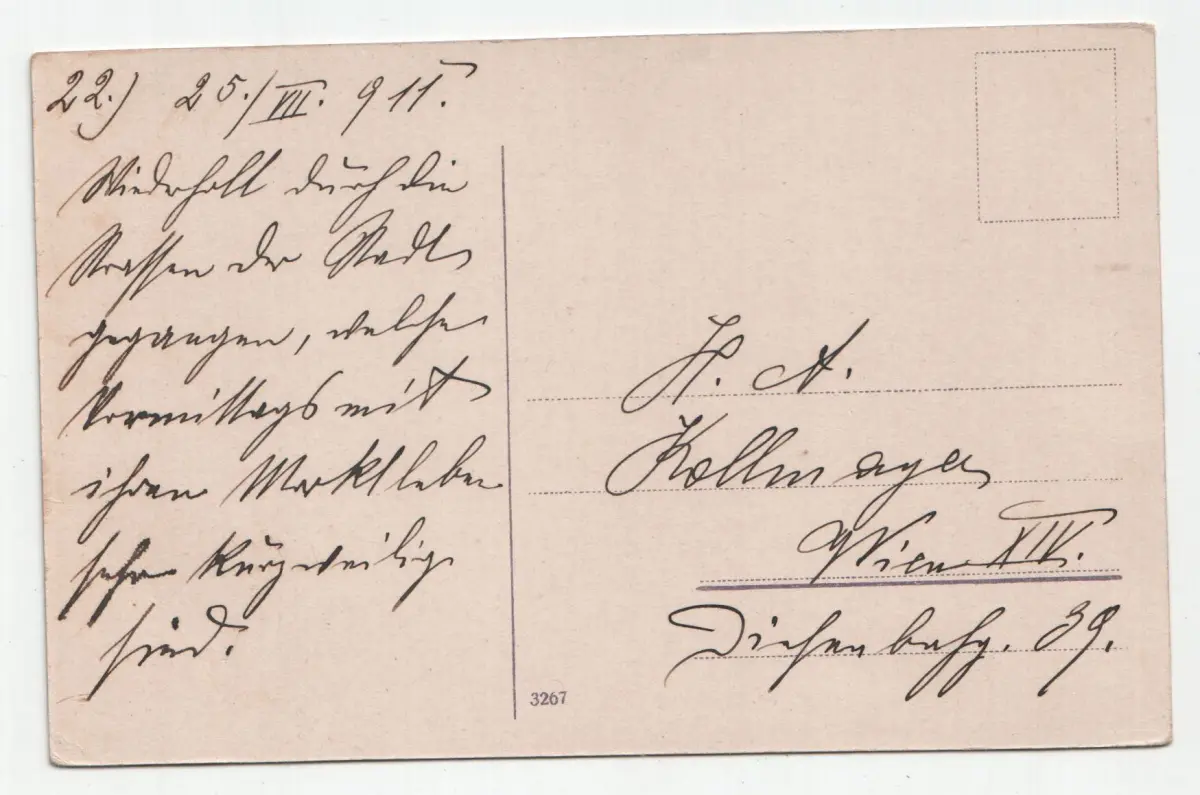 22.) 25./VII. 911.
Wiederholt durch die
Strassen der Stadt
gegangen, welche
Vormittags mit
ihren Marktleben
sehr kurzweilig
sind.
H. A.
Kollmayer
Wien XIV.
39.
3267